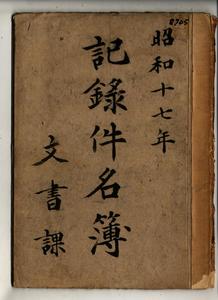 8705
昭和十七年
記錄件名簿
文書課